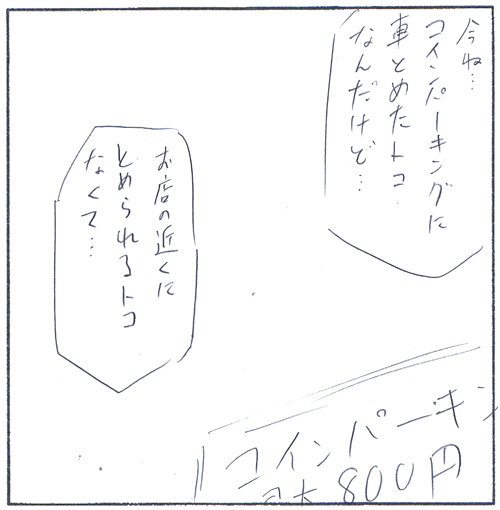 今ね…
コインパーキングに
車とめたトコ
なんだけど…
お店の近くに
とめられるトコ
なくて…
コインパーキン
最大800円